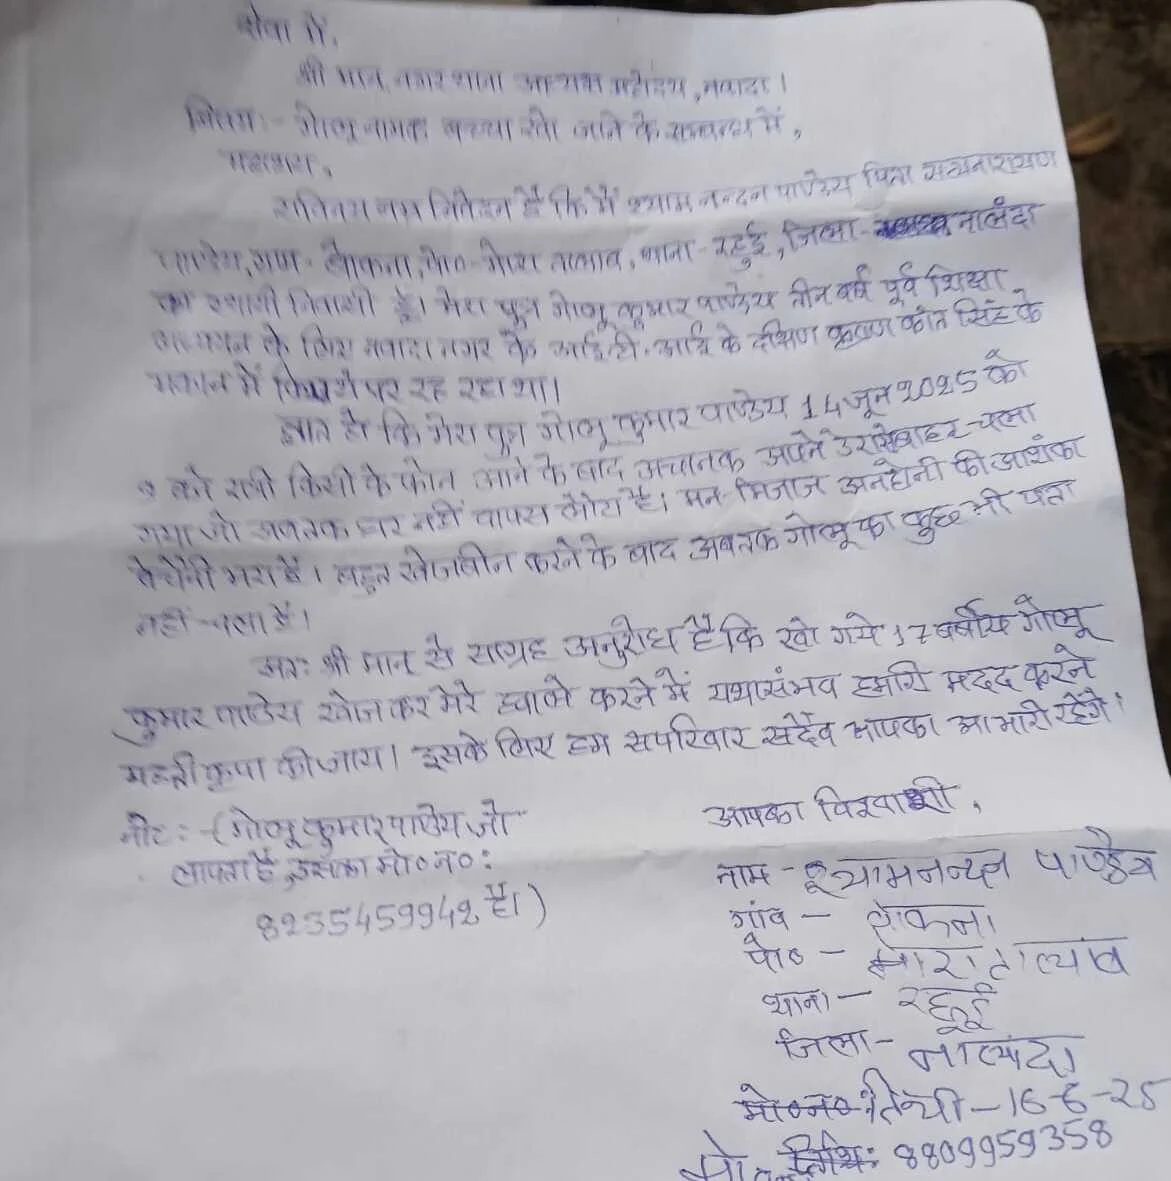 सेवा में,
श्री मान नगर थाना अध्यक्ष महोदय, नवादा।
विषय:- गोलू नामक बच्चा खो जाने के सम्बन्ध में,
महाशय,
सविनय नम्र निवेदन है कि मैं श्याम नन्दन पाण्डेय पिता सत्यनारायण
पाण्डेय, ग्राम- पो०- मोरा तालाब, थाना- रहुई, जिला- नालंदा
का स्थायी निवासी हूँ। मेरा पुत्र गोलू कुमार पाण्डेय तीन वर्ष पूर्व शिक्षा
अध्ययन के लिए नवादा नगर के आई.टी.आई के दक्षिण कृष्ण कांत सिंह के
मकान में किराये पर रह रहा था।
ज्ञात हो कि मेरा पुत्र गोलू कुमार पाण्डेय 14 जून 2025 को
9 बजे रात्री किसी के फोन आने के बाद अचानक अपने डेरा से बाहर चला
गया जो अबतक घर नहीं वापस लौटा है। मन-मिजाज अनहोनी की आशंका
बेचैनी भरा है। बहुत खोजबीन करने के बाद अबतक गोलू का कुछ भी पता
नहीं चला है।
अतः श्री मान से साग्रह अनुरोध है कि खो गये 17 वर्षीय गोलू
कुमार पाण्डेय खोजकर मेरे हवाले करने में यथासंभव हमारी मदद करने
महती कृपा की जाय। इसके लिए हम सपरिवार सदैव आपका आभारी रहेंगे।
नोट:-(गोलू कुमार पाण्डेय जो
लापता है, इसका मो०न०:
8235459942 है।)
आपका विश्वासी,
नाम - श्यामनन्दन पाण्डेय
गांव -
पो० - मोरा तालाब
थाना - रहुई
जिला- नालंदा
मो०न०: तिथी - 16-6-25
मो. तिथि: 8809959358